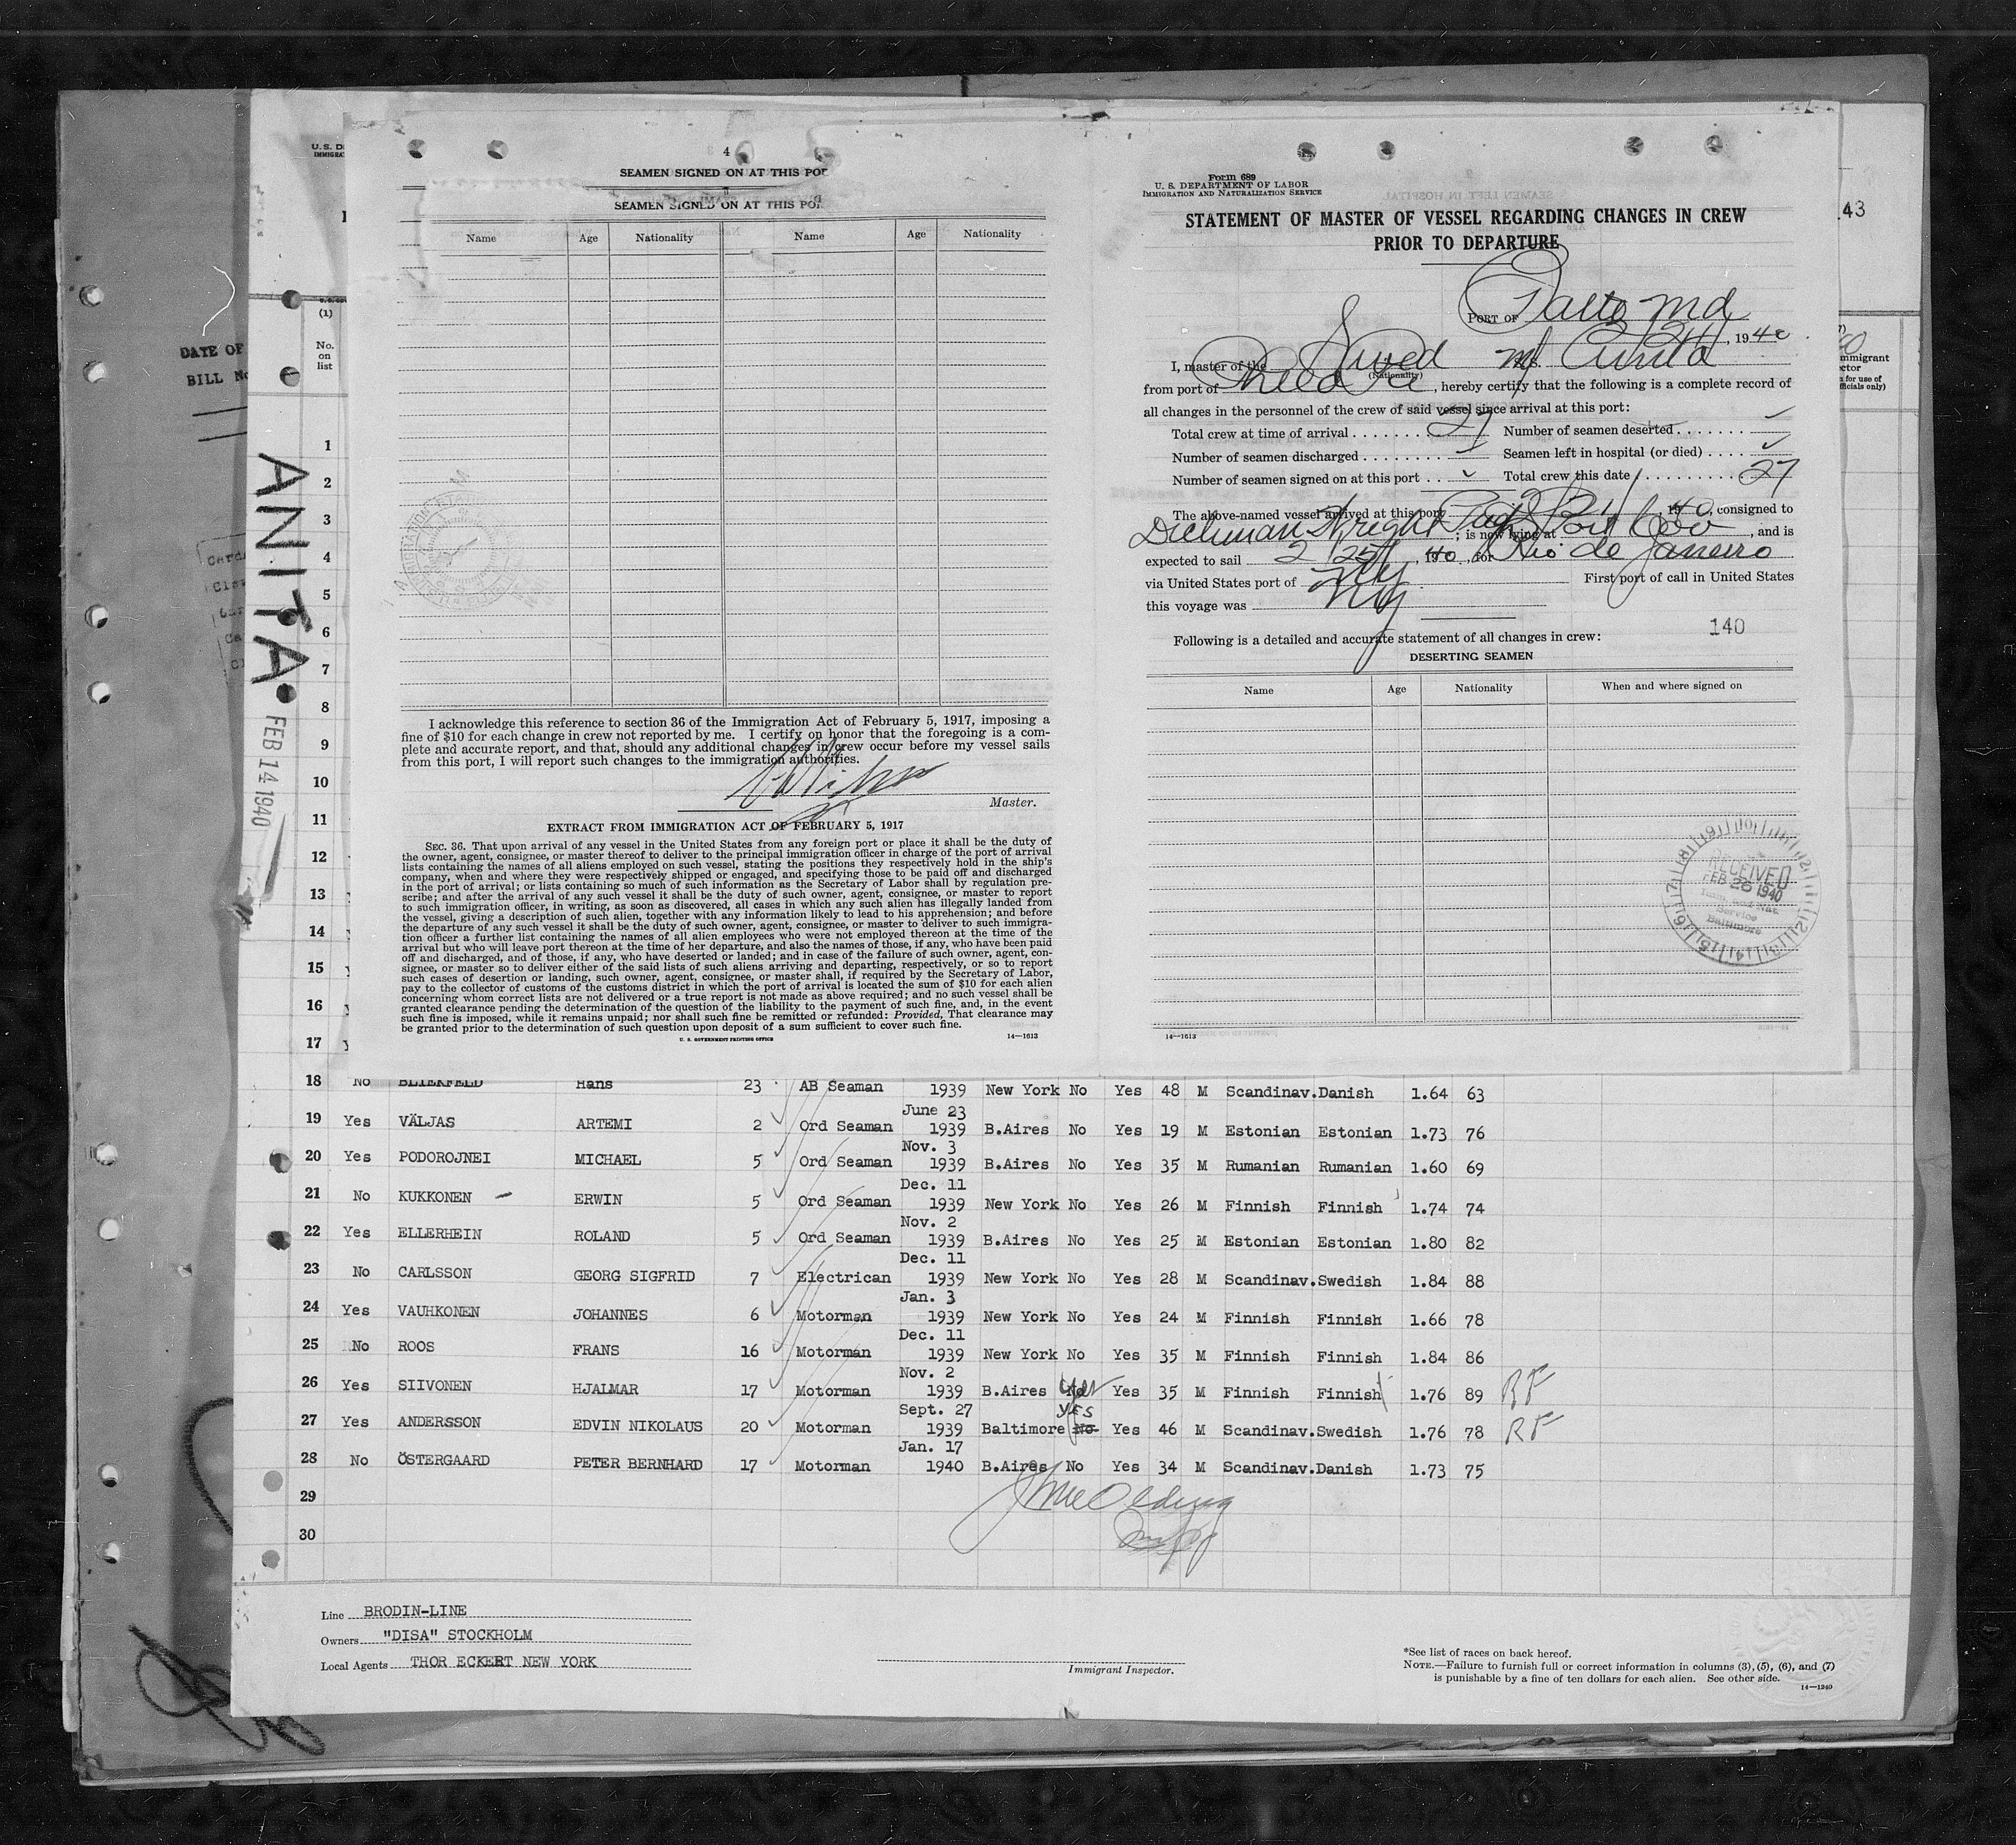 4
SEAMEN SIGNED ON AT THIS POR
SEAMEN SIGNED ON AT THIS POR
Name Age Nationality Name Age Nationality
I acknowledge this reference to section 36 of the Immigration Act of February 5, 1917, imposing a
fine of $10 for each change in crew not reported by me. I certify on honor that the foregoing is a com-
plete and accurate report, and that, should any additional changes in crew occur before my vessel sails
from this port, I will report such changes to the immigration authorities.
Master.
EXTRACT FROM IMMIGRATION ACT OF FEBRUARY 5, 1917
SEC. 36. That upon arrival of any vessel in the United States from any foreign port or place it shall be the duty of
the owner, agent, consignee, or master thereof to deliver to the principal immigration officer in charge of the port of arrival
lists containing the names of all aliens employed on such vessel, stating the positions they respectively hold in the ship's
company, when and where they were respectively shipped or engaged, and specifying those to be paid off and discharged
in the port of arrival; or lists containing so much of such information as the Secretary of Labor shall by regulation pre-
scribe; and after the arrival of any such vessel it shall be the duty of such owner, agent, consignee, or master to report
to such immigration officer, in writing, as soon as discovered, all cases in which any such alien has illegally landed from
the vessel, giving a description of such alien, together with any information likely to lead to his apprehension; and before
the departure of any such vessel it shall be the duty of such owner, agent, consignee, or master to deliver to such immigra-
tion officer a further list containing the names of all alien employees who were not employed thereon at the time of the
arrival but who will leave port thereon at the time of her departure, and also the names of those, if any, who have been paid
off and discharged, and of those, if any, who have deserted or landed; and in case of the failure of such owner, agent, con-
signee, or master so to deliver either of the said lists of such aliens arriving and departing, respectively, or so to report
such cases of desertion or landing, such owner, agent, consignee, or master shall, if required by the Secretary of Labor,
pay to the collector of customs of the customs district in which the port of arrival is located the sum of $10 for each alien
concerning whom correct lists are not delivered or a true report is not made as above required; and no such vessel shall be
granted clearance pending the determination of the question of the liability to the payment of such fine, and, in the event
such fine is imposed, while it remains unpaid; nor shall such fine be remitted or refunded: Provided, That clearance may
be granted prior to the determination of such question upon deposit of a sum sufficient to cover such fine.
U. S. GOVERNMENT PRINTING OFFICE 14—1613
Form 689
U. S. DEPARTMENT OF LABOR
IMMIGRATION AND NATURALIZATION SERVICE
STATEMENT OF MASTER OF VESSEL REGARDING CHANGES IN CREW
PRIOR TO DEPARTURE
PORT OF Balto Md
2/24, 1940
I, master of the Swed M/S. Anita
(Nationality)
from port of Phila Pa, hereby certify that the following is a complete record of
all changes in the personnel of the crew of said vessel since arrival at this port:
Total crew at time of arrival 27 Number of seamen deserted
Number of seamen discharged Seamen left in hospital (or died)
Number of seamen signed on at this port Total crew this date 27
The above-named vessel arrived at this port 1940, consigned to
Dichman Wright Pugh; is now lying at Port Cov, and is
expected to sail 2/25, 1940, for Rio de Janeiro
via United States port of NY First port of call in United States
this voyage was NY
Following is a detailed and accurate statement of all changes in crew:
140
DESERTING SEAMEN
Name Age Nationality When and where signed on
RECEIVED
FEB 26 1940
Service
Baltimore
14—1613
43
mmigrant
ctor
for use of
ficials only)
U. S. D
IMMIGRA
DATE OF
BILL No
(1)
No.
on
list
ANITA
FEB 14 1940
1
2
3
4
5
6
7
8
9
10
11
12
13
14
15
16
17
18 No BLIEKFELD Hans 23 AB Seaman 1939 New York No Yes 48 M Scandinav. Danish 1.64 63
19 Yes VÄLJAS ARTEMI 2 Ord Seaman June 23 1939 B.Aires No Yes 19 M Estonian Estonian 1.73 76
20 Yes PODOROJNEI MICHAEL 5 Ord Seaman Nov. 3 1939 B.Aires No Yes 35 M Rumanian Rumanian 1.60 69
21 No KUKKONEN ERWIN 5 Ord Seaman Dec. 11 1939 New York No Yes 26 M Finnish Finnish 1.74 74
22 Yes ELLERHEIN ROLAND 5 Ord Seaman Nov. 2 1939 B.Aires No Yes 25 M Estonian Estonian 1.80 82
23 No CARLSSON GEORG SIGFRID 7 Electrican Dec. 11 1939 New York No Yes 28 M Scandinav. Swedish 1.84 88
24 Yes VAUHKONEN JOHANNES 6 Motorman Jan. 3 1939 New York No Yes 24 M Finnish Finnish 1.66 78
25 No ROOS FRANS 16 Motorman Dec. 11 1939 New York No Yes 35 M Finnish Finnish 1.84 86
26 Yes SIIVONEN HJALMAR 17 Motorman Nov. 2 1939 B.Aires No Yes Yes 35 M Finnish Finnish 1.76 89 RF
27 Yes ANDERSSON EDVIN NIKOLAUS 20 Motorman Sept. 27 1939 Baltimore No YES Yes 46 M Scandinav. Swedish 1.76 78 RF
28 No ÖSTERGAARD PETER BERNHARD 17 Motorman Jan. 17 1940 B.Aires No Yes 34 M Scandinav. Danish 1.73 75
29
30
Line BRODIN-LINE
Owners "DISA" STOCKHOLM
Local Agents THOR ECKERT NEW YORK
Immigrant Inspector.
*See list of races on back hereof.
NOTE.—Failure to furnish full or correct information in columns (3), (5), (6), and (7)
is punishable by a fine of ten dollars for each alien. See other side.
14—1240